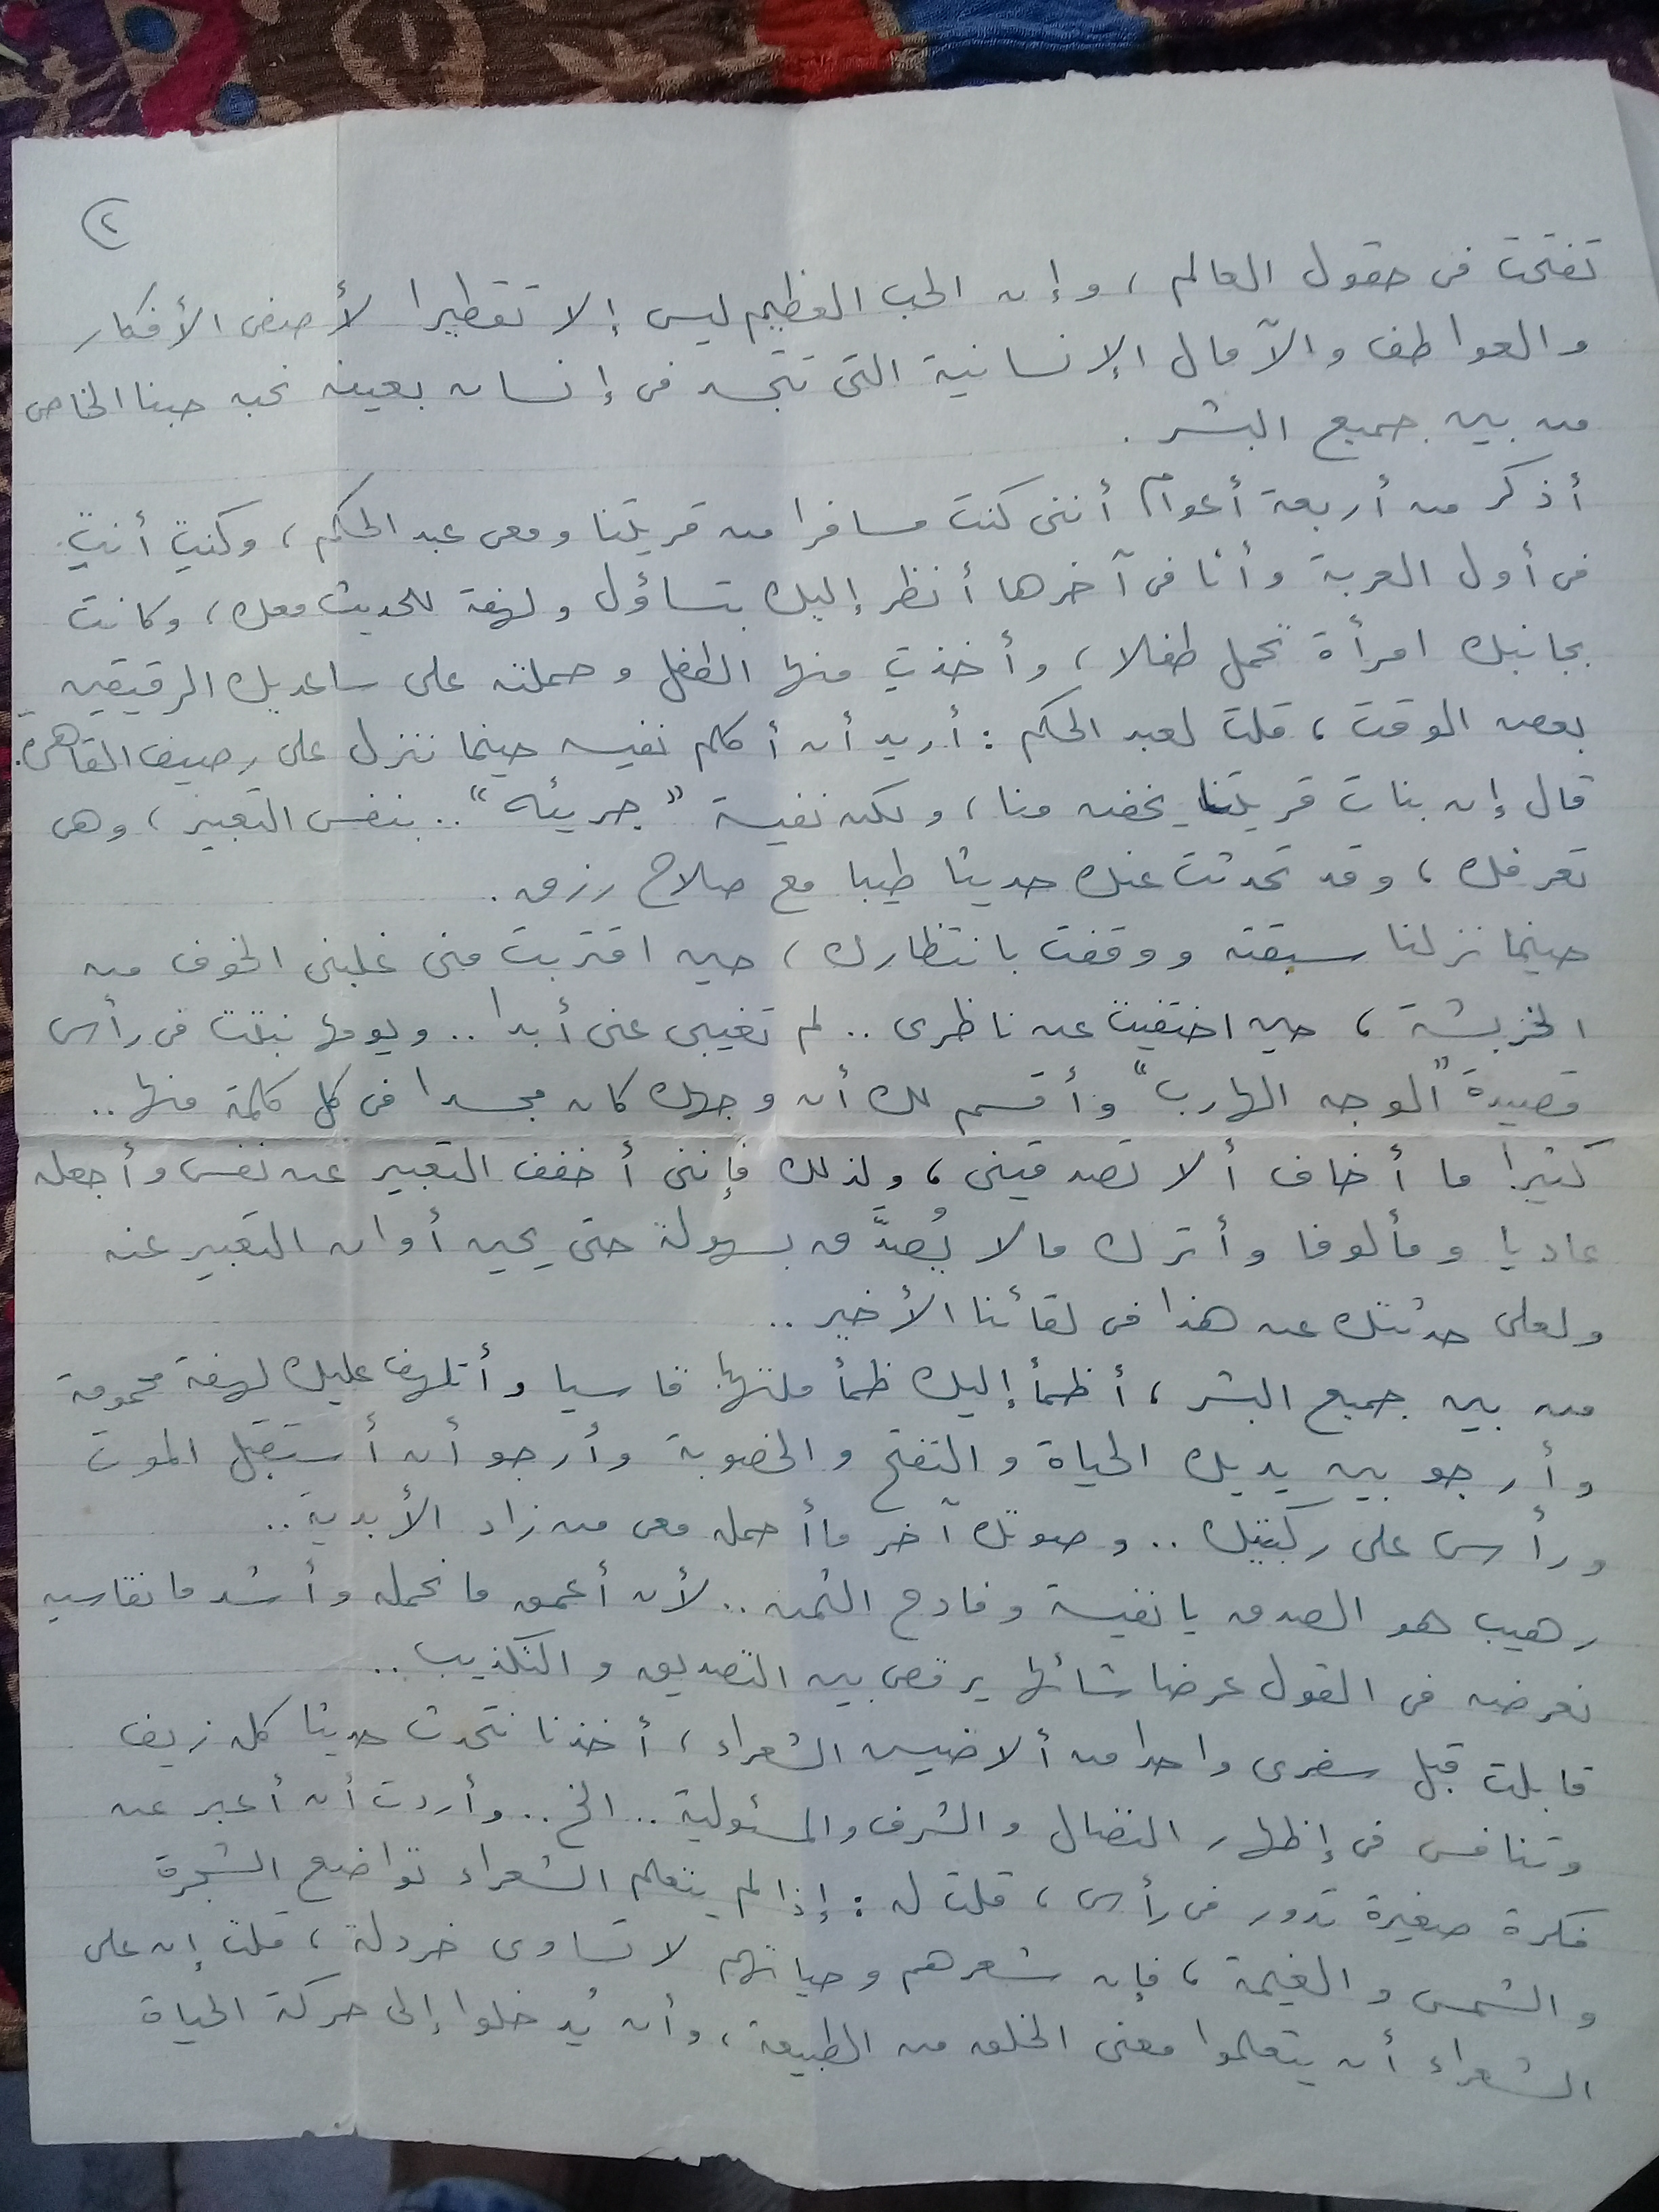 ٢
تفتحت فى حقول العالم ، وإن الحب العظيم ليس إلا تقطيرا لأصفى الأفكار
والعواطف والآمال الإنسانية التى تتجسد فى إنسان بعينه نحبه حبنا الخاص
من بين جميع البشر .
أذكر من أربعة أعوام أننى كنت مسافرا من قريتنا ومعى عبد الحكم ، وكنتِ أنتِ
فى أول العربة وأنا فى آخرها أنظر إليك بتساؤل ولهفة للحديث معك ، وكانت
بجانبك امرأة تحمل طفلا ، وأخذتِ منها الطفل وحملته على ساعديك الرقيقين
بعض الوقت ، قلت لعبد الحكم : أريد أن أكلم نفيسه حينما ننزل على رصيف القاهرة .
قال إن بنات قريتنا يخفن منا ، ولكن نفيسة " جريئه " .. بنفس التعبير ، وهى
تعرفك ، وقد تحدثت عنك حديثا طيبا مع صلاح رزق .
حينما نزلنا سبقته ووقفت بانتظارك ، حين اقتربت منى غلبنى الخوف من
الخربشة ، حين اختفيت عن ناظرى .. لم تغيبى عنى أبدا .. ويومها نبتت فى رأسى
قصيدة " الوجه الهارب " وأقسم لك أن وجهك كان مجسدا فى كل كلمة منها ..
كثيرا ما أخاف ألا تصدقينى ، ولذلك فإننى أخفف التعبير عن نفسى وأجعله
عاديا ومألوفا وأترك مالا يُصدَّق بسهولة حتى يحين أوان التعبير عنه
ولعلى حدثتك عن هذا فى لقائنا الأخير ..
من بين جميع البشر ، أظمأ إليك ظمأ ملتهبا قاسيا وأتلهف عليك لهفة محمومة
وأرجو بين يديك الحياة والتفتح والخصوبة وأرجو أن أستقبل الموت
ورأسى على ركبتيك .. وصوتك آخر ما أحمله معى من زاد الأبدية ..
رهيب هو الصدق يا نفيسة وفادح الثمن .. لأن أعمق ما نحمله وأشد ما نقاسيه
نعرضه فى القول عرضا شائها يرقص بين التصديق والتكذيب ..
قابلت قبل سفرى واحدا من ألاضيش الشعراء ، أخذنا نتحدث حديثا كله زيف
وتنافس فى إظهار النضال والشرف والمسئولية .. الخ .. وأردت أن أعبر عن
فكرة صغيرة تدور فى رأسى ، قلت له : إذا لم يتعلم الشعراء تواضع الشجرة
والشمس والغيمة ، فإن شعرهم وحياتهم لا تساوى خردلة ، قلت إن على
الشعراء أن يتعلموا معنى الخلق من الطبيعة ، وأن يُدخلوا إلى حركة الحياة